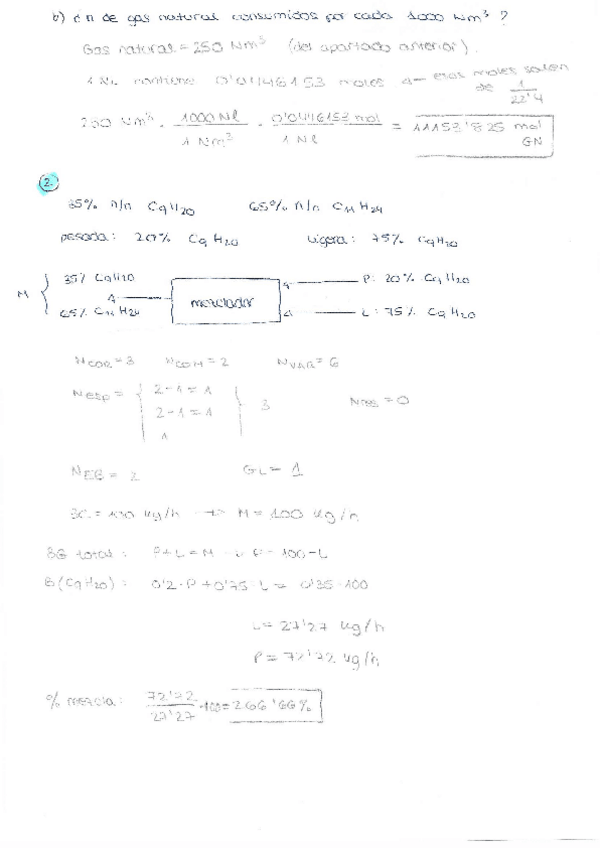 b) ¿ n de gas natural consumidos por cada 1000 Nm³ ?
Gas natural = 250 Nm³ (del apartado anterior).
1 Nl contiene 0'0446153 moles ← esos moles salen de 1/22'4
250 Nm³ · 1000 Nl / 1 Nm³ · 0'0446153 mol / 1 Nl = 11153'825 mol GN
2.
35% n/n C9H20 65% n/n C11H24
pesada: 20% C9H20 ligera: 75% C9H20
M { 35% C9H20 65% C11H24 ← mezclador ← P: 20% C9H20 ← L: 75% C9H20
NCOR = 3 NCOM = 2 NVAR = 6
NESP = { 2-1=1 2-1=1 1 } 3 = 0
NEB = 2 GL = 1
BC = 100 kg/h → M = 100 kg/h
BG total: P+L = M → P = 100-L
B(C9H20): 0'2·P + 0'75·L = 0'35·100
L = 27'27 kg/h
P = 72'72 kg/h
% mezcla: 72'22 / 27'27 ·100 = 266'66%